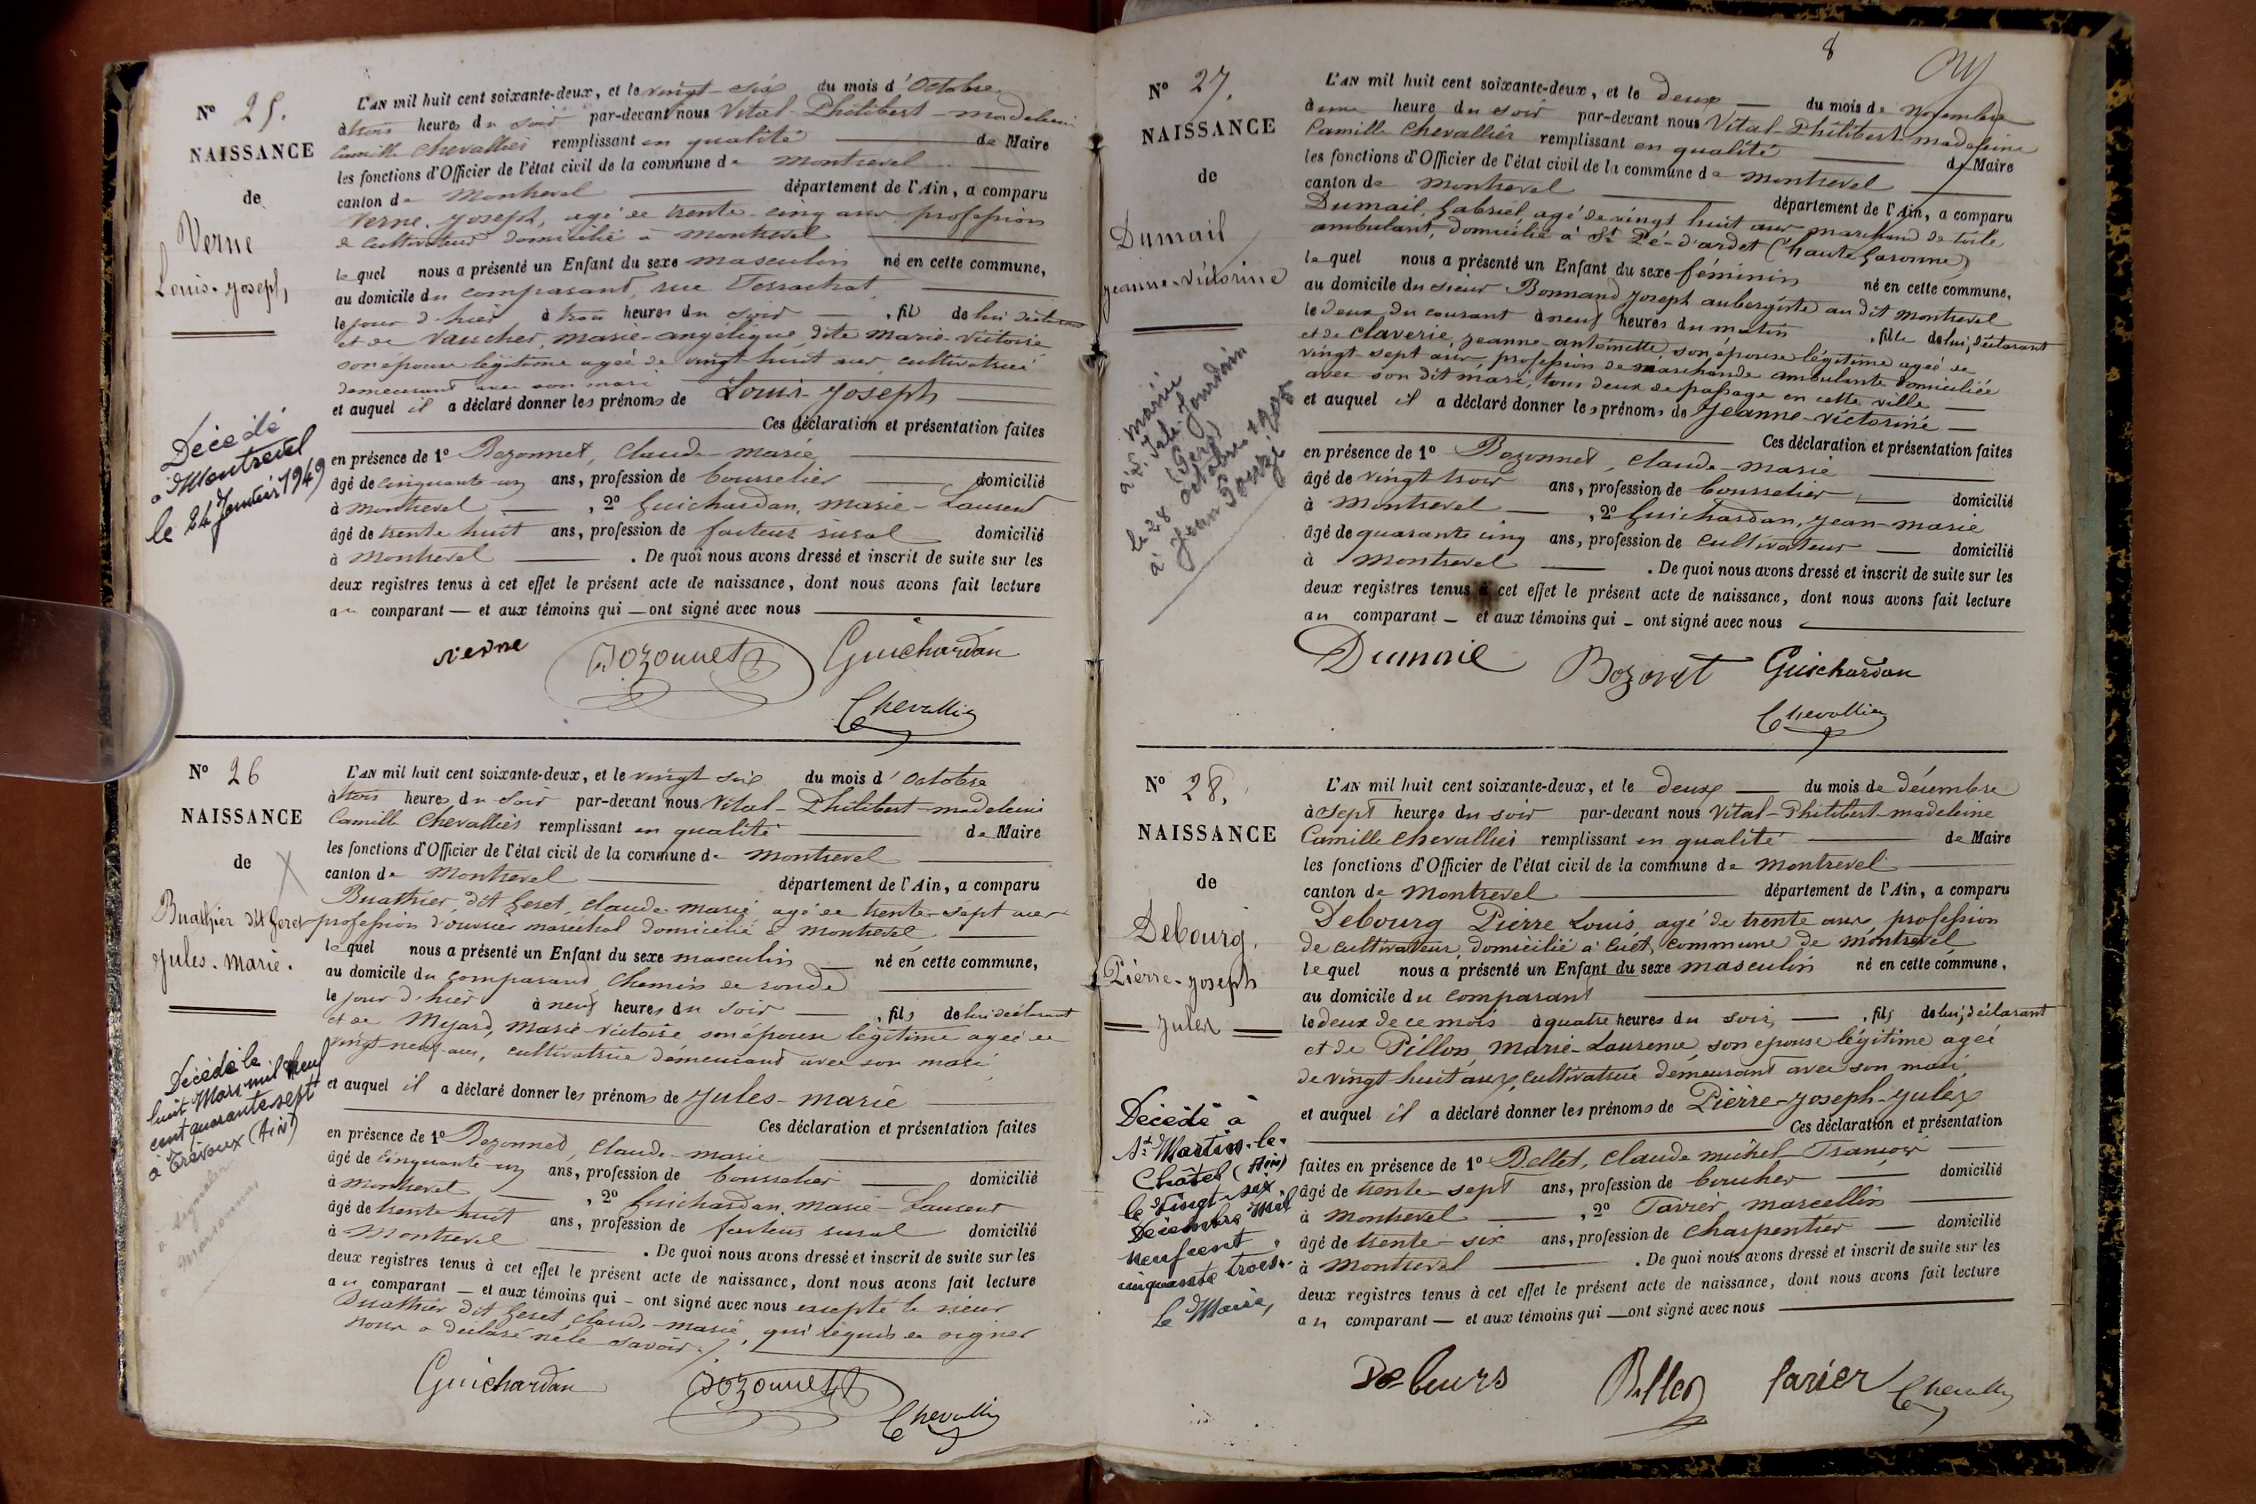 N° 25.
NAISSANCE
de
Verne
Louis-Joseph,
Décédé
à Montrevel
le 24 Janvier 1949
L'AN mil huit cent soixante-deux, et le vingt-six du mois d'Octobre
à trois heures du soir par-devant nous Vital-Philibert-madeleine
Camille Chevallier remplissant en qualité de Maire
les fonctions d'Officier de l'état civil de la commune de montrevel
canton de Montrevel département de l'Ain, a comparu
Verne, Joseph, agé de trente-cinq ans profession
de cultivateur domicilié à montrevel
lequel nous a présenté un Enfant du sexe masculin né en cette commune,
au domicile du comparant, rue
le jour d'hier à trois heures du soir, fils de lui déclarant
et de Vaucher, marie-angélique, dite marie-victoire
son épouse légitime agée de vingt-huit ans, cultivatrice
demeurant avec son mari
et auquel il a déclaré donner les prénoms de Louis-Joseph
Ces déclaration et présentation faites
en présence de 1° Bozonnet, Claude-marie
âgé de cinquante-un ans, profession de bourrelier domicilié
à montrevel, 2° Guichardan, marie-Laurent
âgé de trente huit ans, profession de facteur rural domicilié
à montrevel. De quoi nous avons dressé et inscrit de suite sur les
deux registres tenus à cet effet le présent acte de naissance, dont nous avons fait lecture
au comparant — et aux témoins qui — ont signé avec nous
verne Bozonnet Guichardan
Chevallier
N° 26
NAISSANCE
de
Buathier dit Geret
Jules-marie.
Décédé le
huit Mars mil neuf
cent quarante sept
à Trévoux (Ain)
L'AN mil huit cent soixante-deux, et le vingt six du mois d'Octobre
à trois heures du soir par-devant nous Vital-Philibert-madeleine
Camille Chevallier remplissant en qualité de Maire
les fonctions d'Officier de l'état civil de la commune de montrevel
canton de Montrevel département de l'Ain, a comparu
Buathier, dit Geret, Claude marie agé de trente-sept ans
profession d'ouvrier maréchal domicilié à montrevel
lequel nous a présenté un Enfant du sexe masculin né en cette commune,
au domicile du comparant chemin de ronde
le jour d'hier à neuf heures du soir, fils de lui déclarant
et de Myard, marie-victoire son épouse légitime agée de
vingt neuf ans, cultivatrice démeurant avec son mari
et auquel il a déclaré donner les prénoms de Jules-marie
Ces déclaration et présentation faites
en présence de 1° Bozonnet, Claude-marie
âgé de cinquante-un ans, profession de bourrelier domicilié
à montrevel, 2° Guichardan, marie-Laurent
âgé de trente huit ans, profession de facteur rural domicilié
à montrevel. De quoi nous avons dressé et inscrit de suite sur les
deux registres tenus à cet effet le présent acte de naissance, dont nous avons fait lecture
au comparant — et aux témoins qui — ont signé avec nous excepté le sieur
Buathier dit Geret, Claude-marie, qui requis de signer
nous a déclaré ne le savoir.
Guichardan Bozonnet
Chevallier
8
N° 27.
NAISSANCE
de
Dumail
Jeanne-Victorine
Mariée
à
le 28 octobre 1905
à Jean
L'AN mil huit cent soixante-deux, et le deux du mois de Novembre
à une heure du soir par-devant nous Vital-Philibert-madeleine
Camille Chevallier remplissant en qualité de Maire
les fonctions d'Officier de l'état civil de la commune de montrevel
canton de montrevel département de l'Ain, a comparu
Dumail, Gabriel, agé de vingt huit ans marchand de toile
ambulant, domicilié à St Pé-d'ardet (haute Garonne)
lequel nous a présenté un Enfant du sexe féminin né en cette commune,
au domicile du sieur Bonnand Joseph aubergiste au dit montrevel
le deux du courant à neuf heures du matin, fille de lui, déclarant
et de Claverie, Jeanne-antoinette, son épouse légitime agée de
vingt-sept ans, profession de marchande ambulante domiciliée
avec son dit mari, tous deux de passage en cette ville
et auquel il a déclaré donner les prénoms de Jeanne-Victorine
Ces déclaration et présentation faites
en présence de 1° Bozonnet, Claude-marie
âgé de vingt trois ans, profession de bourrelier domicilié
à Montrevel, 2° Guichardan, Jean-marie
âgé de quarante cinq ans, profession de cultivateur domicilié
à montrevel. De quoi nous avons dressé et inscrit de suite sur les
deux registres tenus à cet effet le présent acte de naissance, dont nous avons fait lecture
au comparant — et aux témoins qui — ont signé avec nous
Dumail Bozonet Guichardan
Chevallier
N° 28.
NAISSANCE
de
Debourg.
Pierre-Joseph
Jules
Décédé à
St Martin-le-
Châtel (Ain)
le vingt-six
Décembre Mil
neuf cent
cinquante trois.
Le Maire,
L'AN mil huit cent soixante-deux, et le deux du mois de décembre
à sept heures du soir par-devant nous Vital-Philibert-madeleine
Camille Chevallier remplissant en qualité de Maire
les fonctions d'Officier de l'état civil de la commune de montrevel
canton de Montrevel département de l'Ain, a comparu
Debourg Pierre Louis, agé de trente ans profession
de cultivateur, domicilié à Cuet, commune de montrevel
lequel nous a présenté un Enfant du sexe masculin né en cette commune,
au domicile du comparant
le deux de ce mois à quatre heures du soir, fils de lui, déclarant
et de Pillon, Marie-Laurence, son épouse légitime agée
de vingt huit ans, cultivatrice démeurant avec son mari,
et auquel il a déclaré donner les prénoms de Pierre-Joseph-Jules
Ces déclaration et présentation
faites en présence de 1° Bellet, Claude michel François
âgé de trente-sept ans, profession de boucher domicilié
à montrevel, 2° Favier marcellin
âgé de trente-six ans, profession de charpentier domicilié
à Montrevel. De quoi nous avons dressé et inscrit de suite sur les
deux registres tenus à cet effet le présent acte de naissance, dont nous avons fait lecture
au comparant — et aux témoins qui — ont signé avec nous
Debours Bellet favier Chevallier